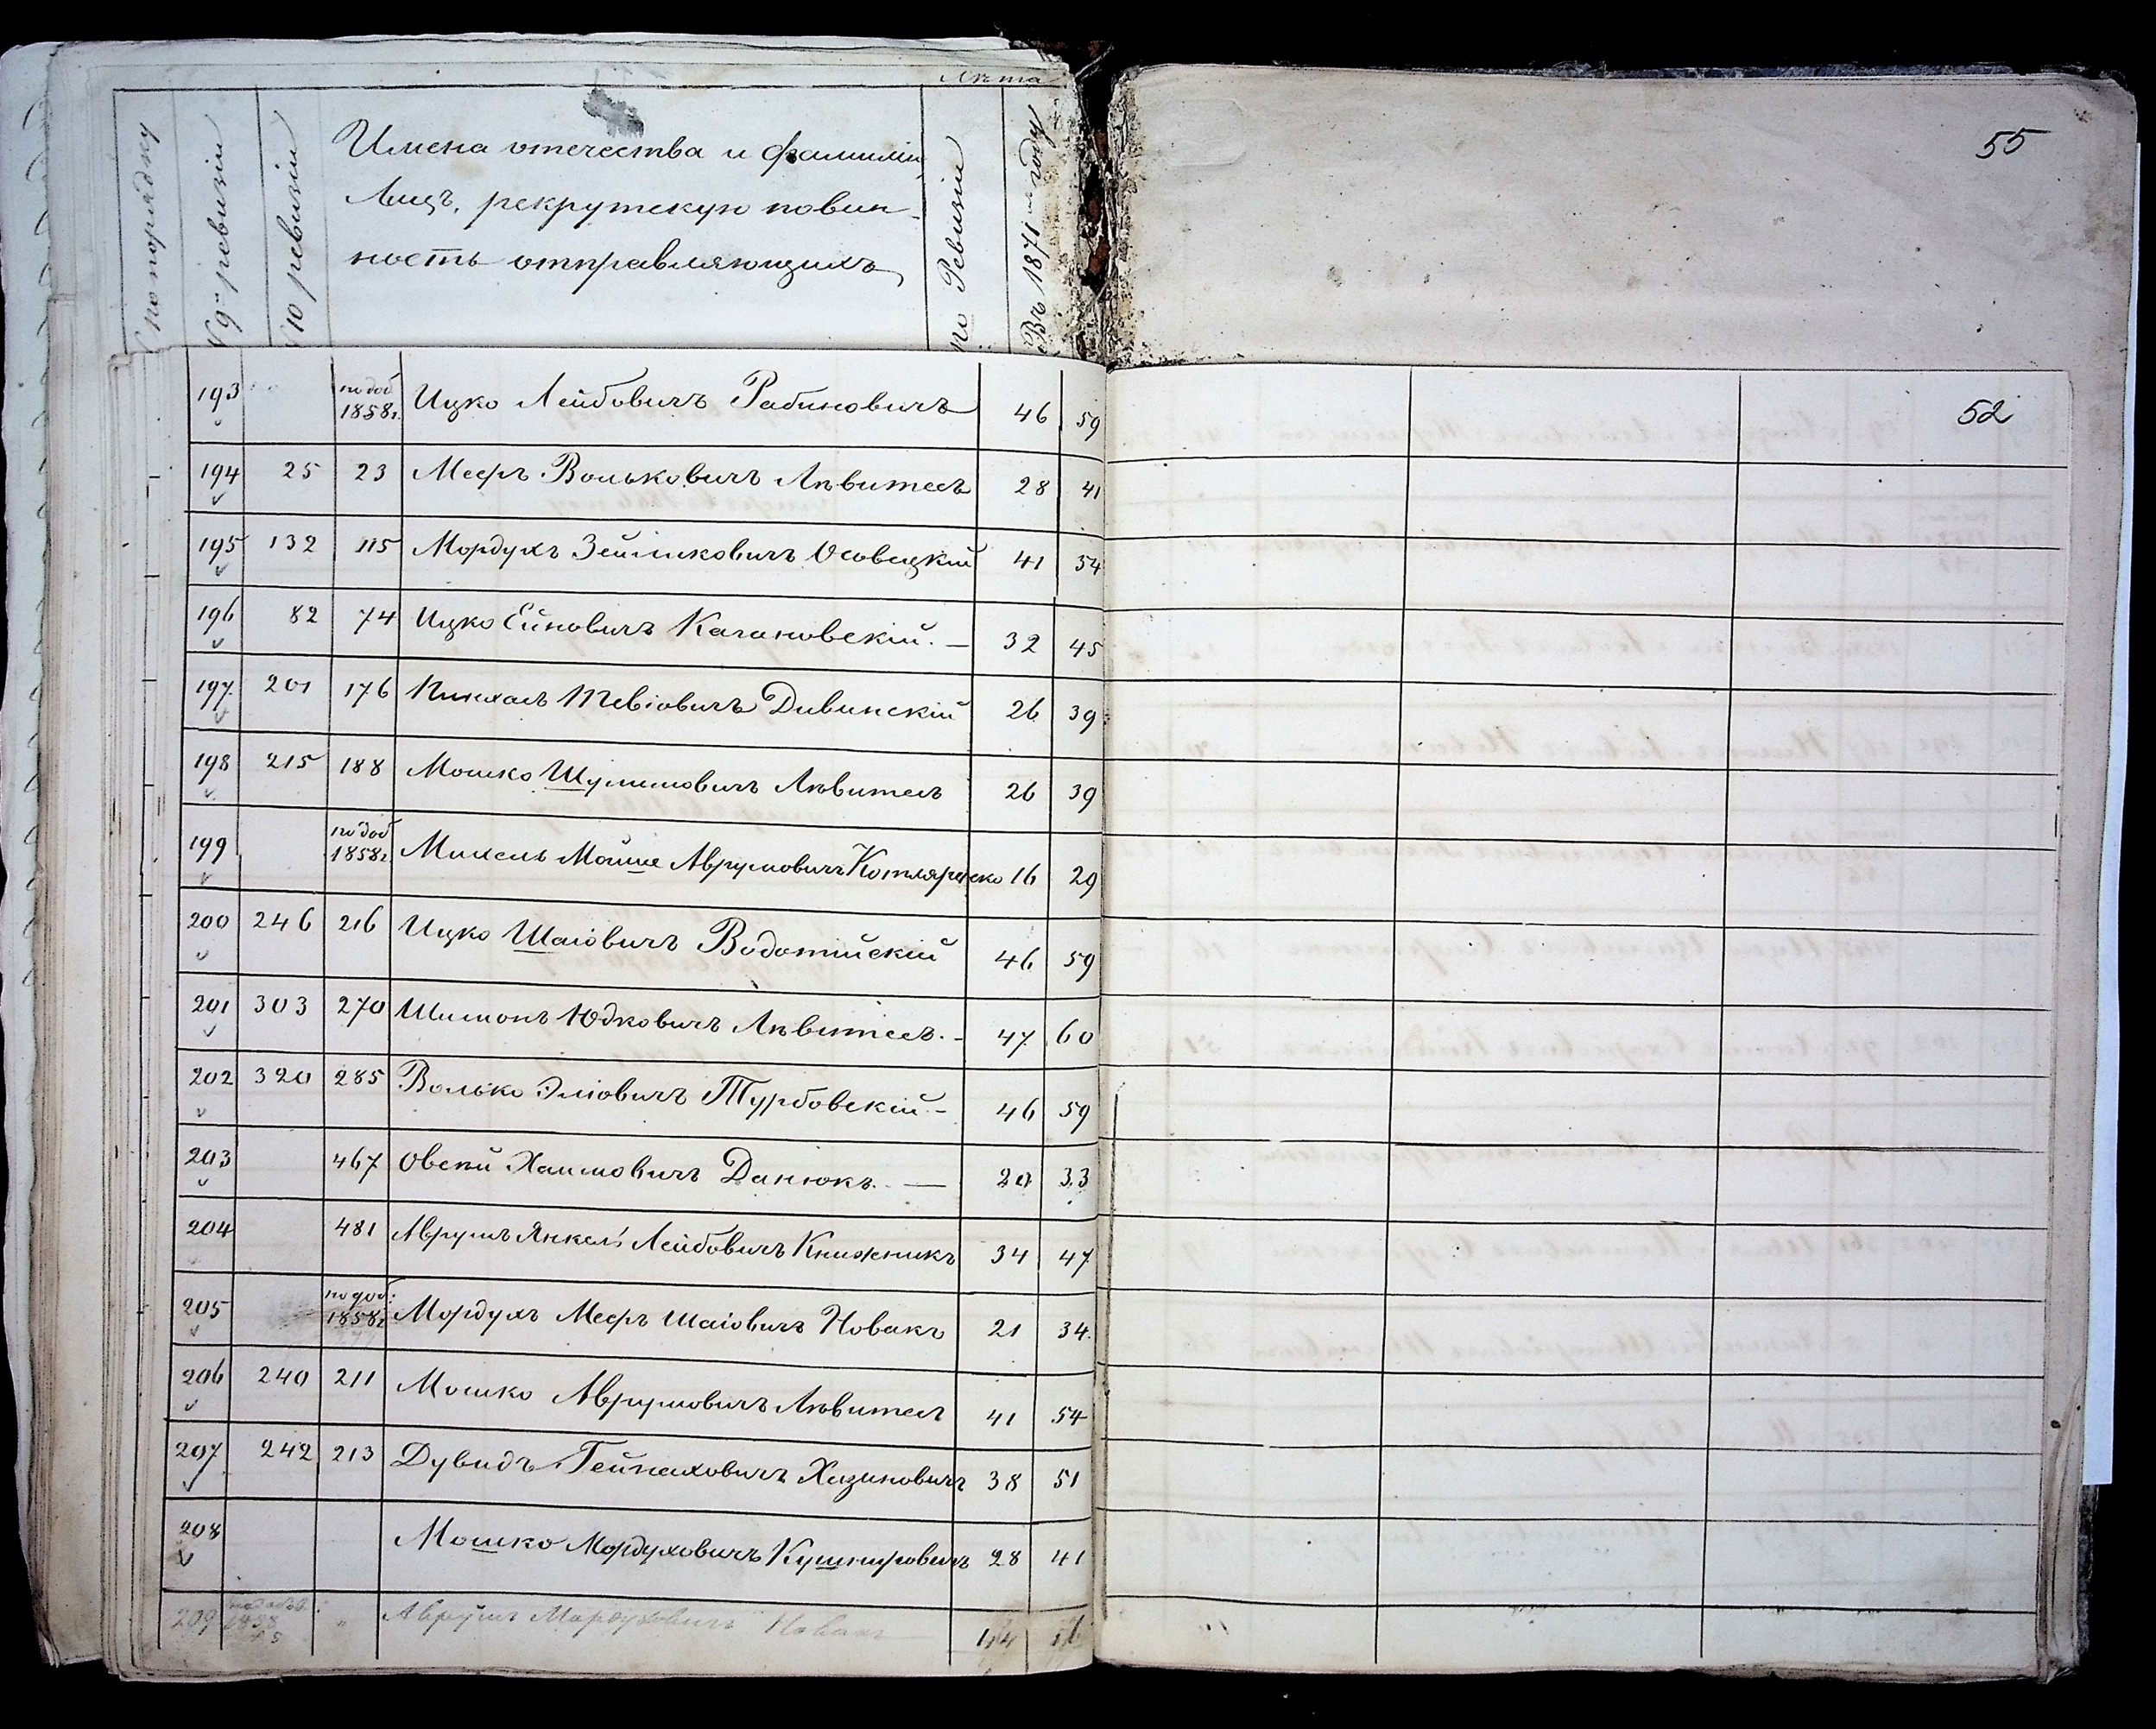 Лѣта
№ по порядку
№ 9й ревизіи
№ 10 ревизіи
Имена отечества и фамиліи
Лицъ, рекрутскую повин-
ность отправляющихъ
по Ревизіи
Въ 1871мъ году
55
52
193 по доб 1858г. Ицко Лейбовичъ Рабиновичъ 46 59
194 25 23 Меерь Вольковичъ Лѣвитесъ 28 41
195 132 115 Мордухъ Зейликовичъ Осовецкій 41 54
196 82 74 Ицко Ейновичъ Кагановскій. — 32 45
197 201 176 Пинхасъ Тевіовичъ Дивинскій 26 39
198 215 188 Мошко Шулимовичъ Лѣвитесъ 26 39
199 по доб 1858г. Михель Мойше Аврумовичъ Котляренко 16 29
200 246 216 Ицко Шаіовичъ Водотійскій 46 59
201 303 270 Шимонъ Юдковичъ Лѣвитесъ. - 47 60
202 320 285 Волько Эліовичъ Турбовскій - 46 59
203 467 Овсій Хаимовичъ Данюкъ. — 20 33
204 481 Аврумъ Янкель Лейбовичъ Книжникъ 34 47
205 по доб: 1858г. Мордухъ Меерь Шаіовичъ Новакъ 21 34.
206 240 211 Мошко Аврумовичъ Лѣвитесъ 41 54
207 242 213 Дувидъ Гейнаховичъ Хазиновичъ 38 51
208 Мошко Мордуховичъ Кушнировичъ 28 41
209 1858 " Аврумъ Мордуховичъ Новакъ